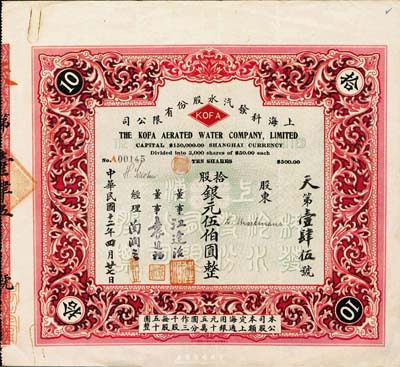 上海科發汽水股份有限公司
KOFA
THE KOFA AERATED WATER COMPANY, LIMITED
CAPITAL $150,000.00 SHANGHAI CURRENCY
Divided into 3,000 shares of $50.00 each
No. A00145
TEN SHARES
$500.00
10
拾
天第壹肆伍號
股東
拾股
銀元伍伯圓整
董事
董事
經理
中華民國十三年四月廿日
本公司股本定額上海通用銀元十五萬元分作三千股每股五十圓
拾
10